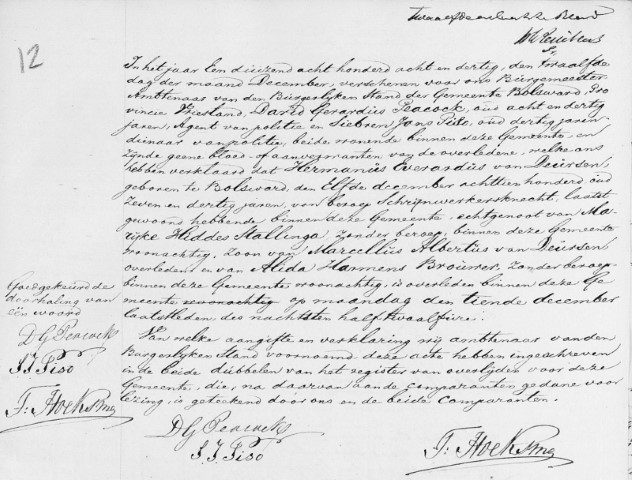 12
In het jaar Een duizend acht honderd acht en dertig, den twaalfde
dag der maand December, verschenen voor ons Burgemeester
Ambtenaar van den Burgerlyken Stand der Gemeente Bolsward, Pro
vincie Vriesland, David Gerardus Peacock, oud acht en dertig
jaren, Agent van politie en Siebren Jans Piso, oud dertig jaren
dienaar van politie, beide wonende binnen deze Gemeente, en
zynde geene bloed- of aanverwanten van de overledene, welke ons
hebben verklaard dat Hermanus Everardus van Deursen,
geboren te Bolsward, den Elfde december achttien honderd, oud
Zeven en dertig jaren, van beroep Schrijnwerkersknecht, laatst
gewoond hebbende binnen deze Gemeente, echtgenoot van Ma-
rijke Hiddes Stallinga Zonder beroep, binnen deze Gemeente
woonachtig, Zoon van Marcellus Albertus van Deussen
overleden en van Alida Harmens Brouwer, Zonder beroep
binnen deze Gemeente woonachtig, is overleden binnen deze Ge
meente woonachtig op maandag den tiende december
laatstleden, des nachts ten half twaalf ure:
Van welke aangifte en verklaring wy ambtenaar van den
Burgerlyken Stand voornoemd deze acte hebben ingeschreven
in de beide dubbelen van het register van overlyden voor deze
Gemeente, die, na daarvan aan de Comparanten gedane voor
lezing, is geteekend door ons en de beide Comparanten.
Goedgekeurd de
doorhaling van
één woord
D G Peacock
S. J. Piso
F: Hoeksma
D G Peacock
S. J. Piso
F: Hoeksma